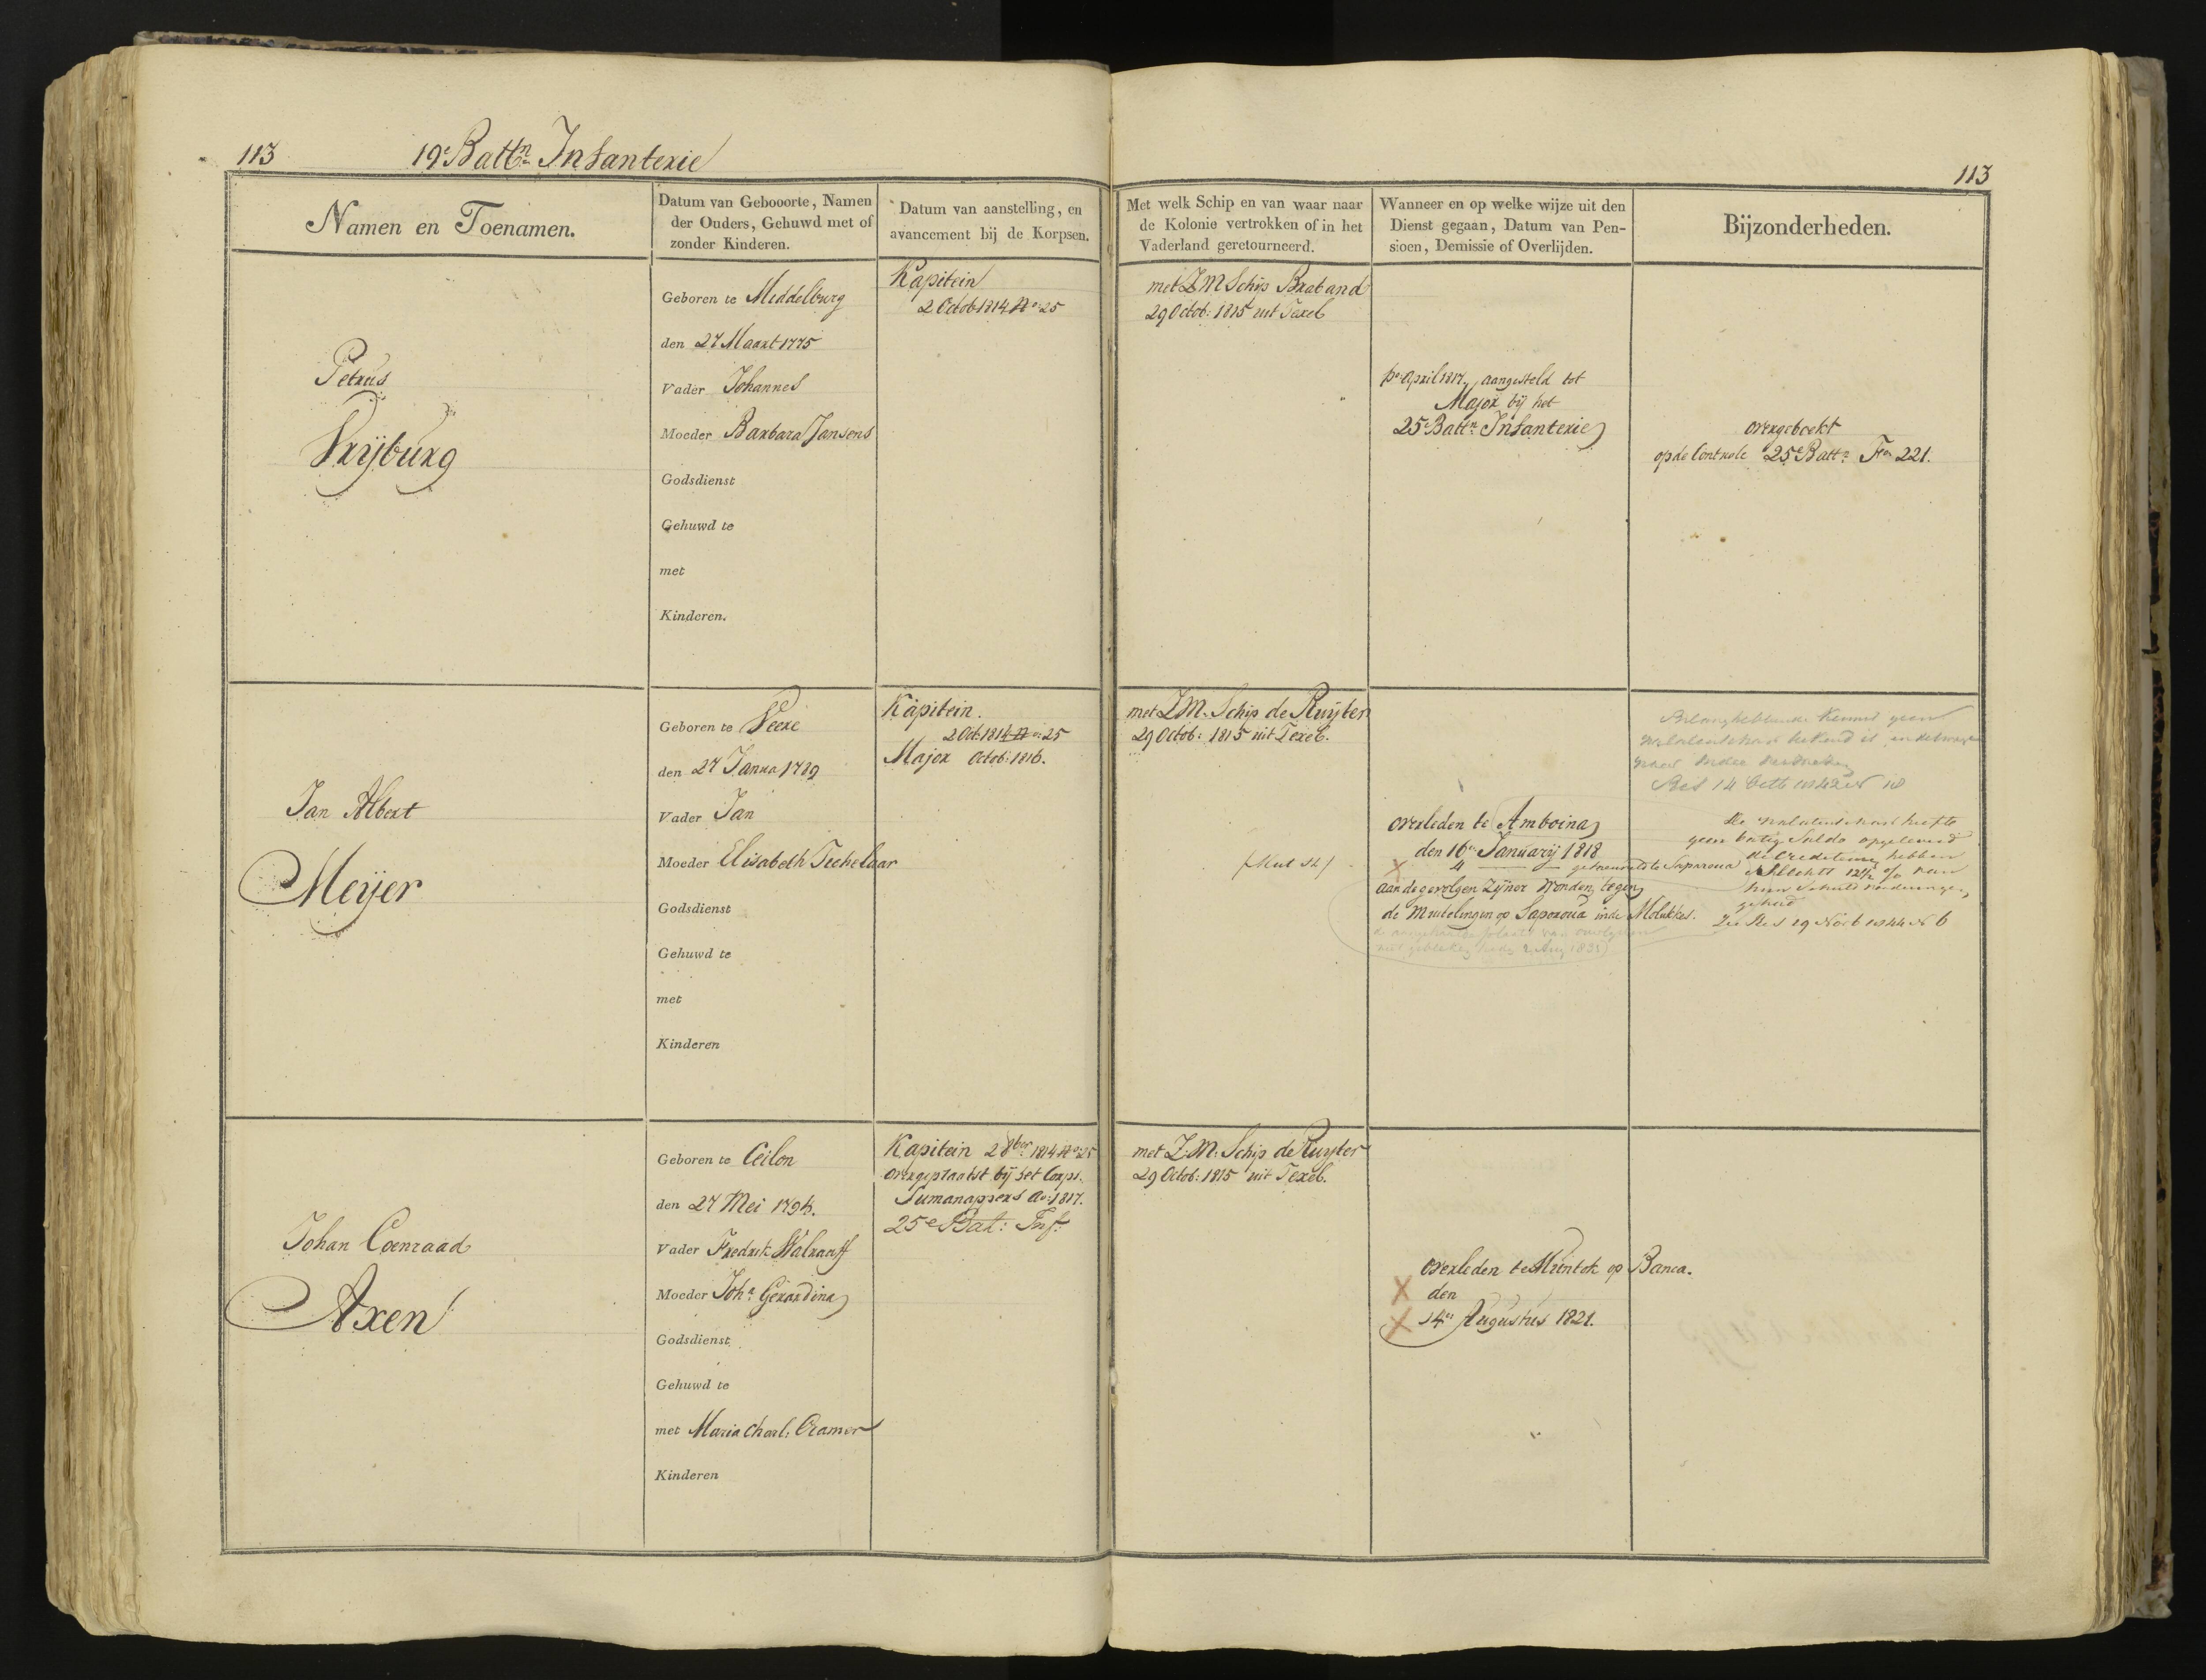 113
19e Battn Infanterie
113
Namen en Toenamen.
Datum van Gebooorte, Namen
der Ouders, Gehuwd met of
zonder Kinderen.
Datum van aanstelling, en
avancement bij de Korpsen.
Met welk Schip en van waar naar
de Kolonie vertrokken of in het
Vaderland geretourneerd.
Wanneer en op welke wijze uit den
Dienst gegaan, Datum van Pen-
sioen, Demissie of Overlijden.
Bijzonderheden.
Petrus
Vrijburg
Geboren te Middelburg
den 27 Maart 1775
Vader Johannes
Moeder Barbara Jansens
Godsdienst
Gehuwd te
met
Kinderen.
Kapitein
2 Octob 1814 No 25
met Z M Schip Braband
29 Octob: 1815 uit Texel
po April 1817, aangesteld tot
Major bij het
25e Battn Infanterie
overgeboekt
op de Controle 25e Battn Fo 221.
Jan Albert
Meijer
Geboren te Veere
den 27 Janua 1789
Vader Jan
Moeder Elisabeth Techelaar
Godsdienst
Gehuwd te
met
Kinderen
Kapitein.
2 Oct. 1814 No 25
Major Octob: 1816.
met Z.M. Schip de Ruijter
29 Octob: 1815 uit Texel.
overleden te Amboina
den 16en Januarij 1818
4 gesneuveld te Saparoua
aan de gevolgen Zijner Wonden tegen
de Muitelingen op Saparoua in de Molukkos.
Belanghebbende kennis geen
Res 14 Octb 1842 N 18
De nalatenschap heeft
geen batig Saldo opgeleverd
de Crediteuren hebben
slechts 12½ % van
hun Schuld vorderingen
gehad
Zie Res 19 Nov 1844 N 6
Johan Coenraad
Axen
Geboren te Ceilon
den 27 Mei 1794.
Vader Fredrik Walraaff
Moeder Joha Gerardina
Godsdienst
Gehuwd te
met Maria Charl: Cramer
Kinderen
Kapitein 2 8ber 1814 No 25
overgeplaatst bij het Corps.
Sumanappers Ao 1817.
25e Bat: Inf:
met Z: M: Schip de Ruijter
29 Octob: 1815 uit Texel.
overleden te Muntok op Banca.
den
14en Augustus 1821.